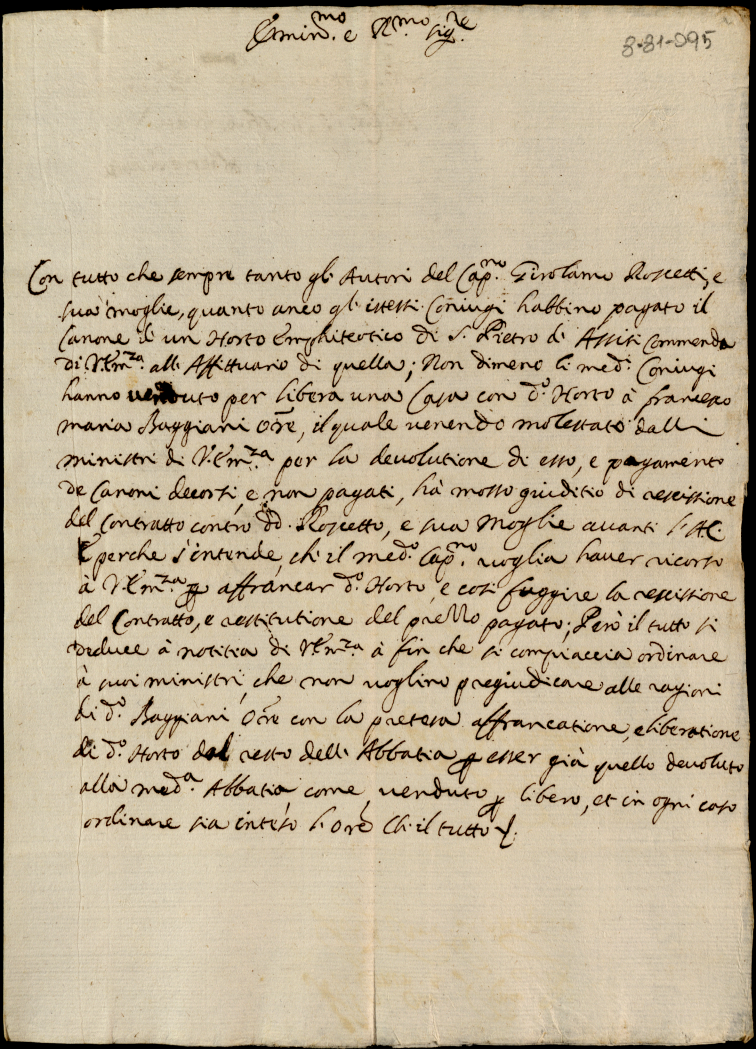 Emin.mo e R.mo Sig.re
8-81-095
Con tutto che sempre tanto gl'Autori del Cap.no Girolamo Roscetti, e
sua moglie, quanto anco gl'istessi Coniugi habbino pagato il
Canone di un Horto Emphiteotico di S. Pietro di Assisi Commenda
di V. Em.za all'Affittuario di quella; Non dimeno li med.i Coniugi
hanno venduto per libera una Casa con d.o Horto à francesco
maria Baggiani Ore, il quale venendo molestato dalli
ministri di V. Em.za per la devolutione di esso, e pagamento
de Canoni decorsi, e non pagati, hà mosso giuditio di rescissione
del Contratto contro d.o Roscetto, e sua Moglie avanti l'AC.
E perche s'intende, ch'il med.o Cap.no voglia haver ricorso
à V. Em.za p affrancar d.o Horto, e così fuggire la rescissione
del Contratto, e restitutione del prezzo pagato; Però il tutto si
deduce à notitia di V. Em.za à fin che si compiaccia ordinare
à suoi ministri, che non voglino pregiudicare alle ragioni
di d.o Baggiani Ore con la pretesa affrancatione, e liberatione
di d.o Horto dal resto dell'Abbatia p esser già quello devoluto
alla med.a Abbatia come venduto p libero, et in ogni caso
ordinare sia inteso l'Ore Ch'il tutto